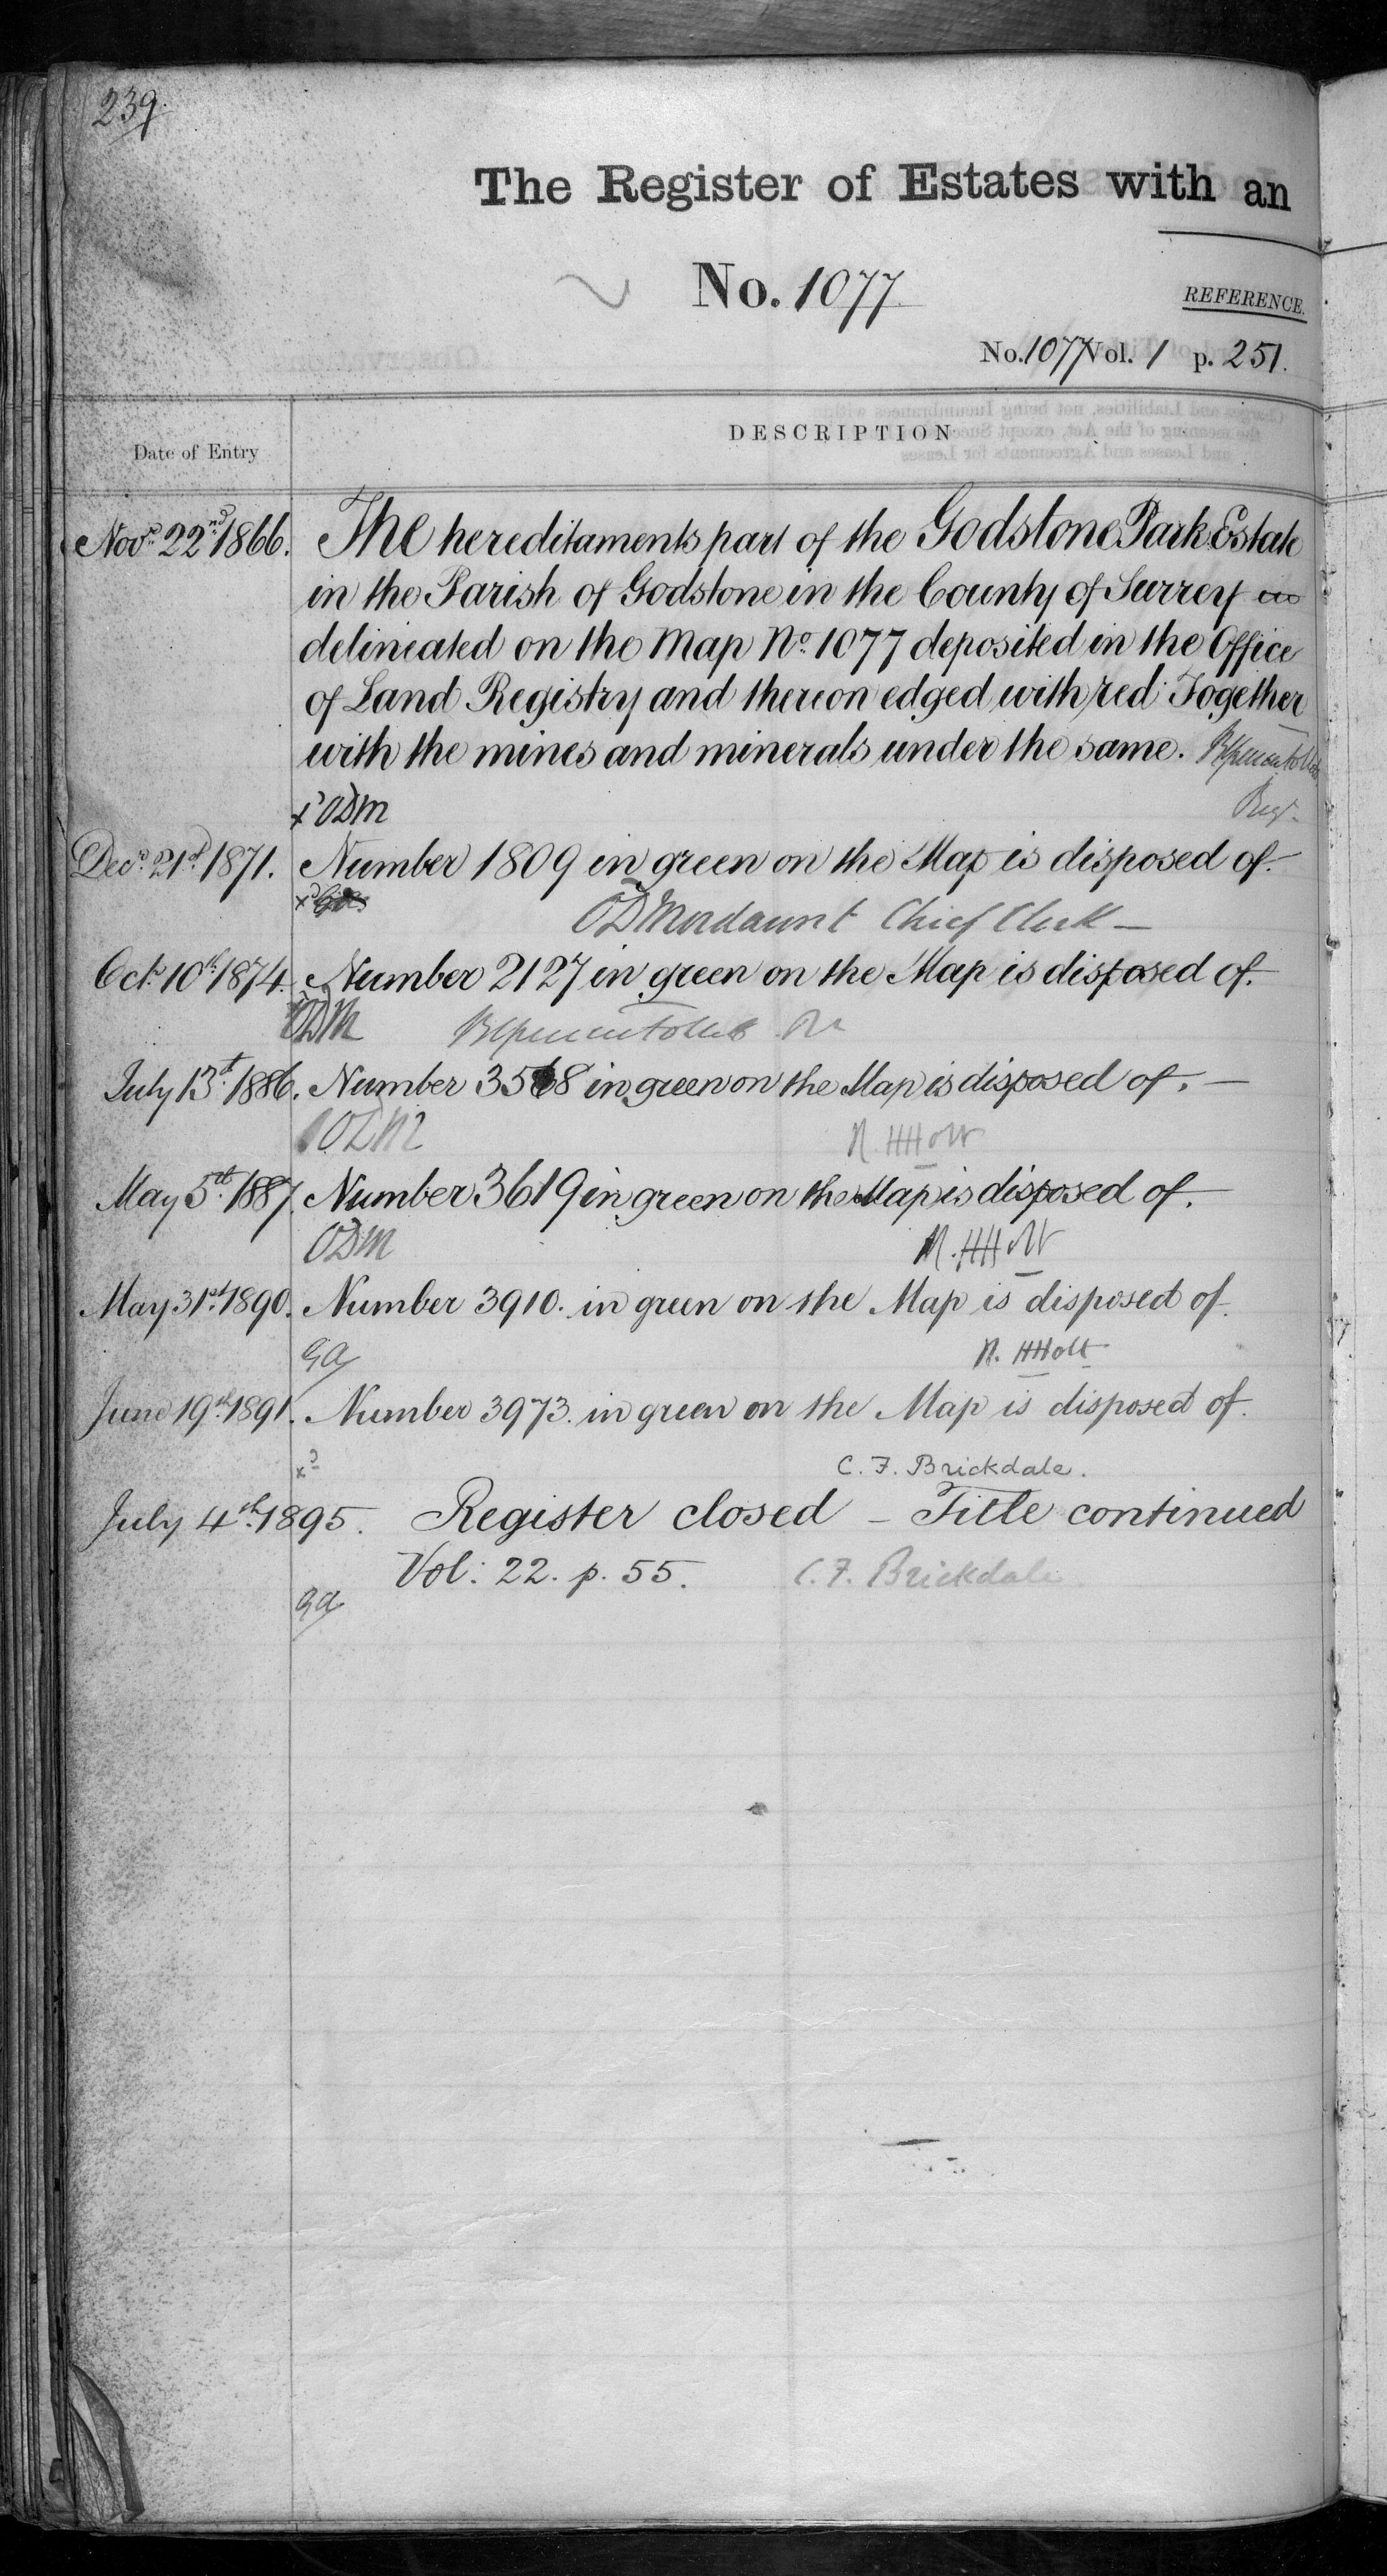 239
The Register of Estates with an
No. 1077
REFERENCE.
No. 1077 Vol. 1 p. 251.
Date of Entry
DESCRIPTION
Novr. 22nd 1866. The hereditaments part of the Godstone Park Estate
in the Parish of Godstone in the County of Surrey in
delineated on the Map No. 1077 deposited in the Office
of Land Registry and thereon edged with red Together
with the mines and minerals under the same.
xd ODM Reg.
Decr. 21st 1871. Number 1809 in green on the Map is disposed of.
ODMordaunt Chief Clerk
Octr. 10th 1874. Number 2127 in green on the Map is disposed of.
ODM
July 13th 1886. Number 3568 in green on the Map is disposed of.
ODM R. HHolt
May 5th 1887. Number 3619 in green on the Map is disposed of.
ODM R. HHolt
May 31st 1890. Number 3910. in green on the Map is disposed of.
GA R. HHolt
June 19th 1891. Number 3973. in green on the Map is disposed of.
xd C. F. Brickdale.
July 4th 1895. Register closed – Title continued
Vol: 22. p. 55. C. F. Brickdale
GA